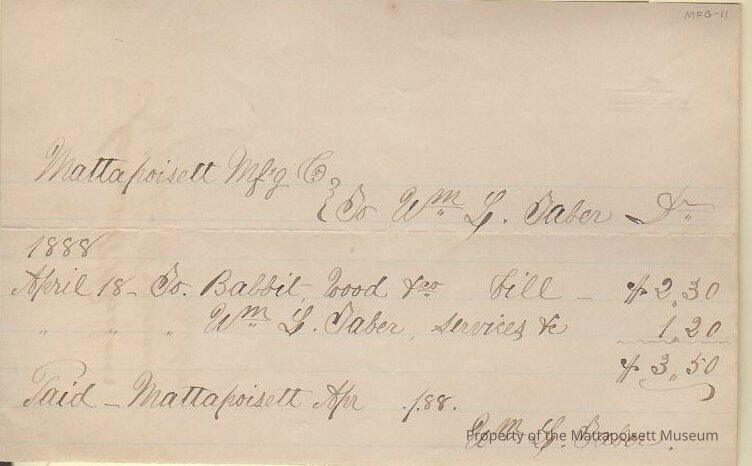 MFG-11
Mattapoisett Mf'g Co
} To Wm L. Taber Dr
1888
April 18 - To. Babbit, Wood &co bill - $2,30
" " " Wm L. Taber, services &c 1,20
$3,50
Paid - Mattapoisett Apr ./88.
Wm L. Taber.
Property of the Mattapoisett Museum